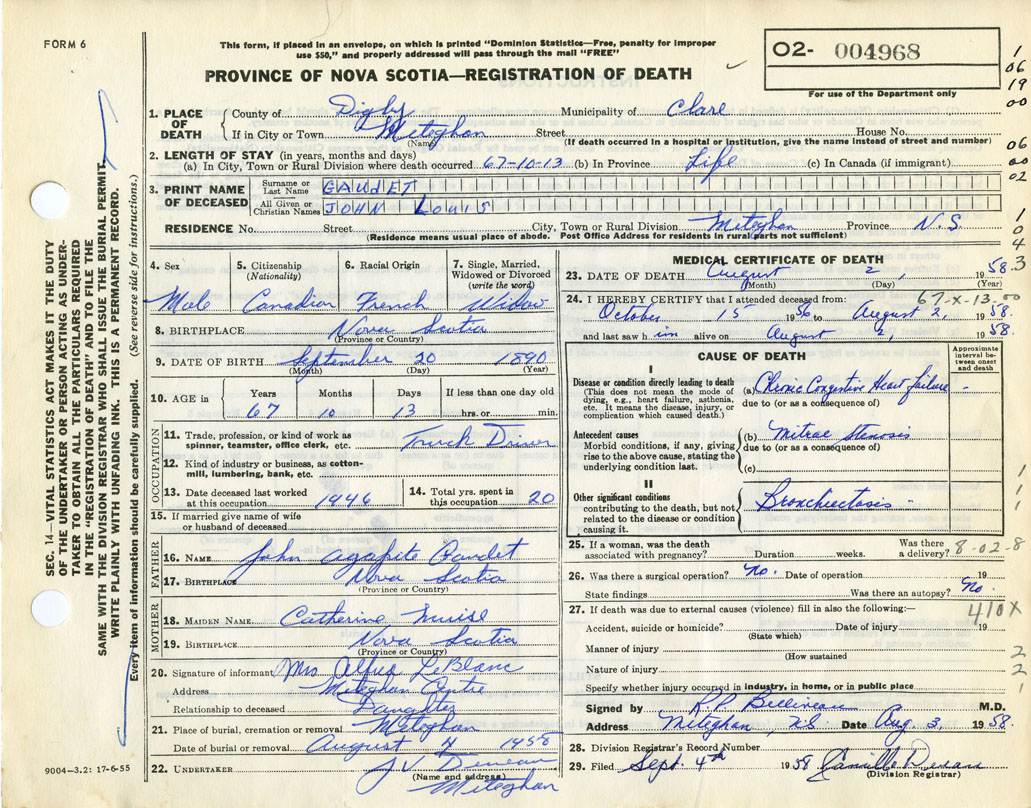 FORM 6
This form, if placed in an envelope, on which is printed "Dominion Statistics—Free, penalty for improper
use $50," and properly addressed will pass through the mail "FREE"
PROVINCE OF NOVA SCOTIA—REGISTRATION OF DEATH
O2- 004968
For use of the Department only
1 06 19 00
06 00 02
1 0 4 3
1 1 1
2 2 1
SEC. 14—VITAL STATISTICS ACT MAKES IT THE DUTY
OF THE UNDERTAKER OR PERSON ACTING AS UNDER-
TAKER TO OBTAIN ALL THE PARTICULARS REQUIRED
IN THE "REGISTRATION OF DEATH" AND TO FILE THE
SAME WITH THE DIVISION REGISTRAR WHO SHALL ISSUE THE BURIAL PERMIT.
WRITE PLAINLY WITH UNFADING INK. THIS IS A PERMANENT RECORD.
Every item of information should be carefully supplied. (See reverse side for instructions.)
1. PLACE OF DEATH
County of Digby Municipality of Clare
If in City or Town Meteghan Street House No.
(Name) (If death occurred in a hospital or institution, give the name instead of street and number)
2. LENGTH OF STAY (in years, months and days)
(a) In City, Town or Rural Division where death occurred 67-10-13 (b) In Province Life (c) In Canada (if immigrant)
3. PRINT NAME OF DECEASED
Surname or Last Name GAUDET
All Given or Christian Names JOHN LOUIS
RESIDENCE No. Street City, Town or Rural Division Meteghan Province N.S.
(Residence means usual place of abode. Post Office Address for residents in rural parts not sufficient)
4. Sex 5. Citizenship (Nationality) 6. Racial Origin 7. Single, Married, Widowed or Divorced (write the word)
Male Canadian French Widow
8. BIRTHPLACE Nova Scotia
(Province or Country)
9. DATE OF BIRTH September 20 1890
(Month) (Day) (Year)
10. AGE in Years Months Days If less than one day old
67 10 13 hrs. or min.
OCCUPATION
11. Trade, profession, or kind of work as spinner, teamster, office clerk, etc. Truck Driver
12. Kind of industry or business, as cotton-mill, lumbering, bank, etc.
13. Date deceased last worked at this occupation 1946 14. Total yrs. spent in this occupation 20
15. If married give name of wife or husband of deceased
FATHER
16. NAME John Agapite Gaudet
17. BIRTHPLACE Nova Scotia
(Province or Country)
MOTHER
18. MAIDEN NAME Catherine Muise
19. BIRTHPLACE Nova Scotia
(Province or Country)
20. Signature of informant Mrs Alfred LeBlanc
Address Meteghan Centre
Relationship to deceased Daughter
21. Place of burial, cremation or removal Meteghan
Date of burial or removal August 4 1958
22. UNDERTAKER J V Deneau
(Name and address) Meteghan
9004-3.2: 17-6-55
MEDICAL CERTIFICATE OF DEATH
23. DATE OF DEATH August 2 1958.
(Month) (Day) (Year)
67-X-13.00
24. I HEREBY CERTIFY that I attended deceased from:
October 15 1956 to August 2, 1958.
and last saw him alive on August 2, 1958.
CAUSE OF DEATH
Approximate interval between onset and death
I
Disease or condition directly leading to death
(This does not mean the mode of dying, e.g., heart failure, asthenia, etc. It means the disease, injury, or complication which caused death.)
(a) Chronic Congestive Heart Failure -
due to (or as a consequence of)
Antecedent causes
Morbid conditions, if any, giving rise to the above cause, stating the underlying condition last.
(b) Mitral Stenosis
due to (or as a consequence of)
(c)
II
Other significant conditions
contributing to the death, but not related to the disease or condition causing it.
Bronchiectasis -
25. If a woman, was the death associated with pregnancy? Duration weeks. Was there a delivery? 8-02-8
26. Was there a surgical operation? No. Date of operation 19
State findings Was there an autopsy? No.
27. If death was due to external causes (violence) fill in also the following:— 410X
Accident, suicide or homicide? Date of injury 19
(State which)
Manner of injury
(How sustained
Nature of injury
Specify whether injury occurred in industry, in home, or in public place
Signed by R P Belliveau M.D.
Address Meteghan, N.S. Date Aug. 3, 1958.
28. Division Registrar's Record Number
29. Filed Sept. 4th 1958 Camille
(Division Registrar)